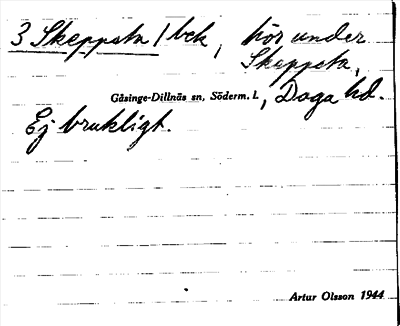 3 Skeppsta / bck, hör under
Skeppsta,
Gåsinge-Dillnäs sn, Söderm. l., Daga hd.
Ej brukligt.
Artur Olsson 1944